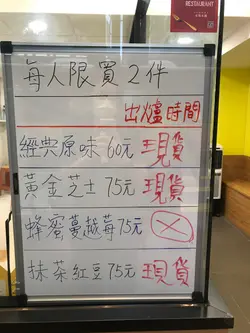 RESTAURANT
每人限買2件
出爐時間
經典原味 60元 現貨
黃金芝士 75元 現貨
蜂蜜蔓越莓75元
抹茶紅豆75元 現貨